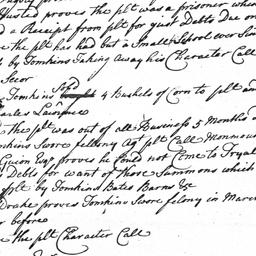 Justed proves the plt was a prisoner when
d a Receipt from plt for Just Debts Due on
e the plt has had but a Small School ever Sin
t by Tomkins Taking away his Character Call
Secor
Tomkins Sold 4 Bushels of Corn to plt an
Charles Laurance
the plt was out of all Business 5 Months
Tomkins Swore fellony agt plt Call Monmou
Guion Esqr proves he Could not Come to Tryal
Debts for want of those Summons which
plt by Tomkins Bates Barns &c
Drake proves Tomkins Swore felony in Marc
r before
e the plt Character Call